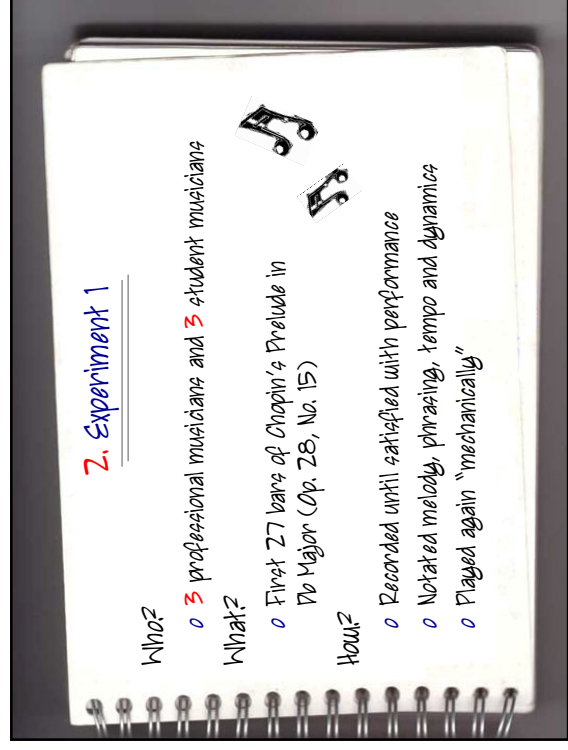 2. Experiment 1
Who?
o 3 professional musicians and 3 student musicians
What?
o First 27 bars of Chopin's Prelude in
Db Major (Op. 28, No. 15)
How?
o Recorded until satisfied with performance
o Notated melody, phrasing, tempo and dynamics
o Played again "mechanically"